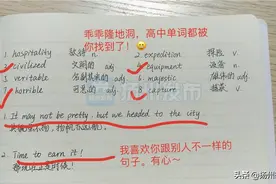 乖乖隆地洞。高中单词都被
你找到了!
1. hospitality 款待 n. 2. expedition 探险 n.
3. civilized 文明的 adj 4. equipment 设备 n.
5. veritable adj 6. majestic 雄伟的 adj
7. horrible 可恶的 adj 8. capture 捕获 v.
1. It may not be pretty but we headed to the city
我喜欢你跟别人不一样的
2. Time to earn it!
句子。有心~
头条 @扬州